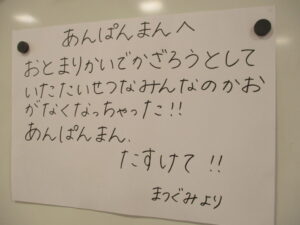 あんぱんまんへ
おとまりかいでかざろうとして
いたたいせつなみんなのかお
がなくなっちゃった!!
あんぱんまん、
たすけて!!
まつぐみより